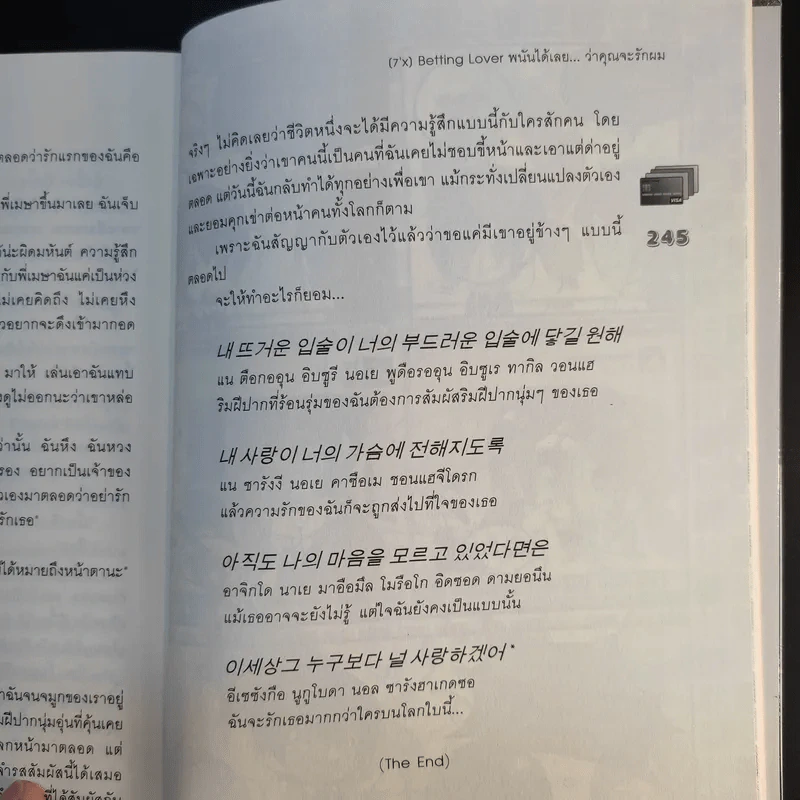 ตลอดว่ารักแรกของฉันคือ
พี่เมษาขึ้นมาเลย ฉันเจ็บ
น่ะผิดมหันต์ ความรู้สึก
กับพี่เมษาฉันแค่เป็นห่วง
ไม่เคยคิดถึง ไม่เคยหึง
อยากจะดึงเข้ามากอด
มาให้ เล่นเอาฉันแทบ
ดูไม่ออกนะว่าเขาหล่อ
ว่านั้น ฉันหึง ฉันหวง
รอง อยากเป็นเจ้าของ
เองมาตลอดว่าอย่ารัก
รักเธอ"
ได้หมายถึงหน้าตานะ"
ฉันจนจมูกของเราอยู่
ฝีปากนุ่มอุ่นที่คุ้นเคย
หน้ามาตลอด แต่
รสสัมผัสนี้ได้เสมอ
ที่ได้สัมผัสกับ
(7'x) Betting Lover พนันได้เลย... ว่าคุณจะรักผม
จริงๆ ไม่คิดเลยว่าชีวิตหนึ่งจะได้มีความรู้สึกแบบนี้กับใครสักคน โดย
เฉพาะอย่างยิ่งว่าเขาคนนี้เป็นคนที่ฉันเคยไม่ชอบขี้หน้าและเอาแต่ด่าอยู่
ตลอด แต่วันนี้ฉันกลับทำได้ทุกอย่างเพื่อเขา แม้กระทั่งเปลี่ยนแปลงตัวเอง
และยอมคุกเข่าต่อหน้าคนทั้งโลกก็ตาม
เพราะฉันสัญญากับตัวเองไว้แล้วว่าขอแค่มีเขาอยู่ข้างๆ แบบนี้
ตลอดไป
จะให้ทำอะไรก็ยอม...
VISA
245
내 뜨거운 입술이 너의 부드러운 입술에 닿길 원해
แน ตือกออุน อิบซูรี นอเย พูดือรออุน อิบซูเร ทากิล วอนแฮ
ริมฝีปากที่ร้อนรุ่มของฉันต้องการสัมผัสริมฝีปากนุ่มๆ ของเธอ
내 사랑이 너의 가슴에 전해지도록
แน ซารังงี นอเย คาซือเม ชอนแฮจีโดรก
แล้วความรักของฉันก็จะถูกส่งไปที่ใจของเธอ
아직도 나의 마음을 모르고 있었다면은
อาจิกโด นาเย มาอือมึล โมรือโก อิดซอด ดามยอนึน
แม้เธออาจจะยังไม่รู้ แต่ใจฉันยังคงเป็นแบบนั้น
이세상그 누구보다 널 사랑하겠어*
อีเซซังกือ นูกูโบดา นอล ซารังฮาเกดซอ
ฉันจะรักเธอมากกว่าใครบนโลกใบนี้...
(The End)